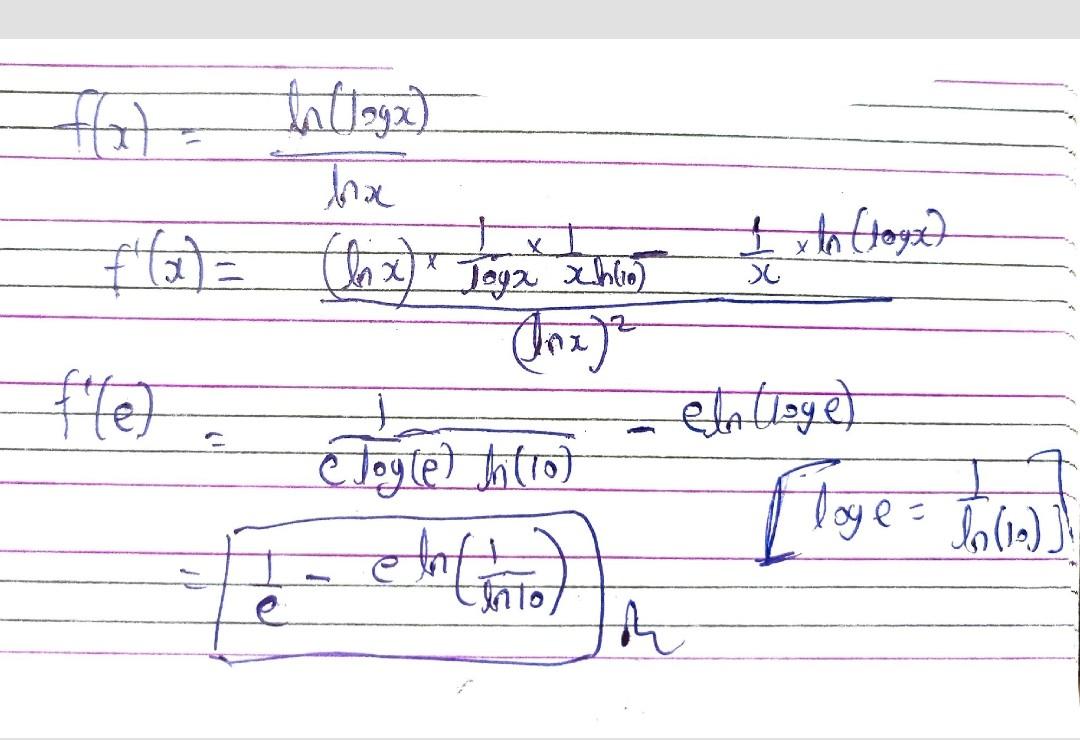 f(x) = ln(logx) / lnx
f'(x) = ((lnx) × 1/logx × 1/xln(10) - 1/x × ln(logx)) / (lnx)²
f'(e) = 1 / (e log(e) ln(10)) - eln(loge)
[loge = 1/ln(10)]
= 1/e - e ln(1/ln10)